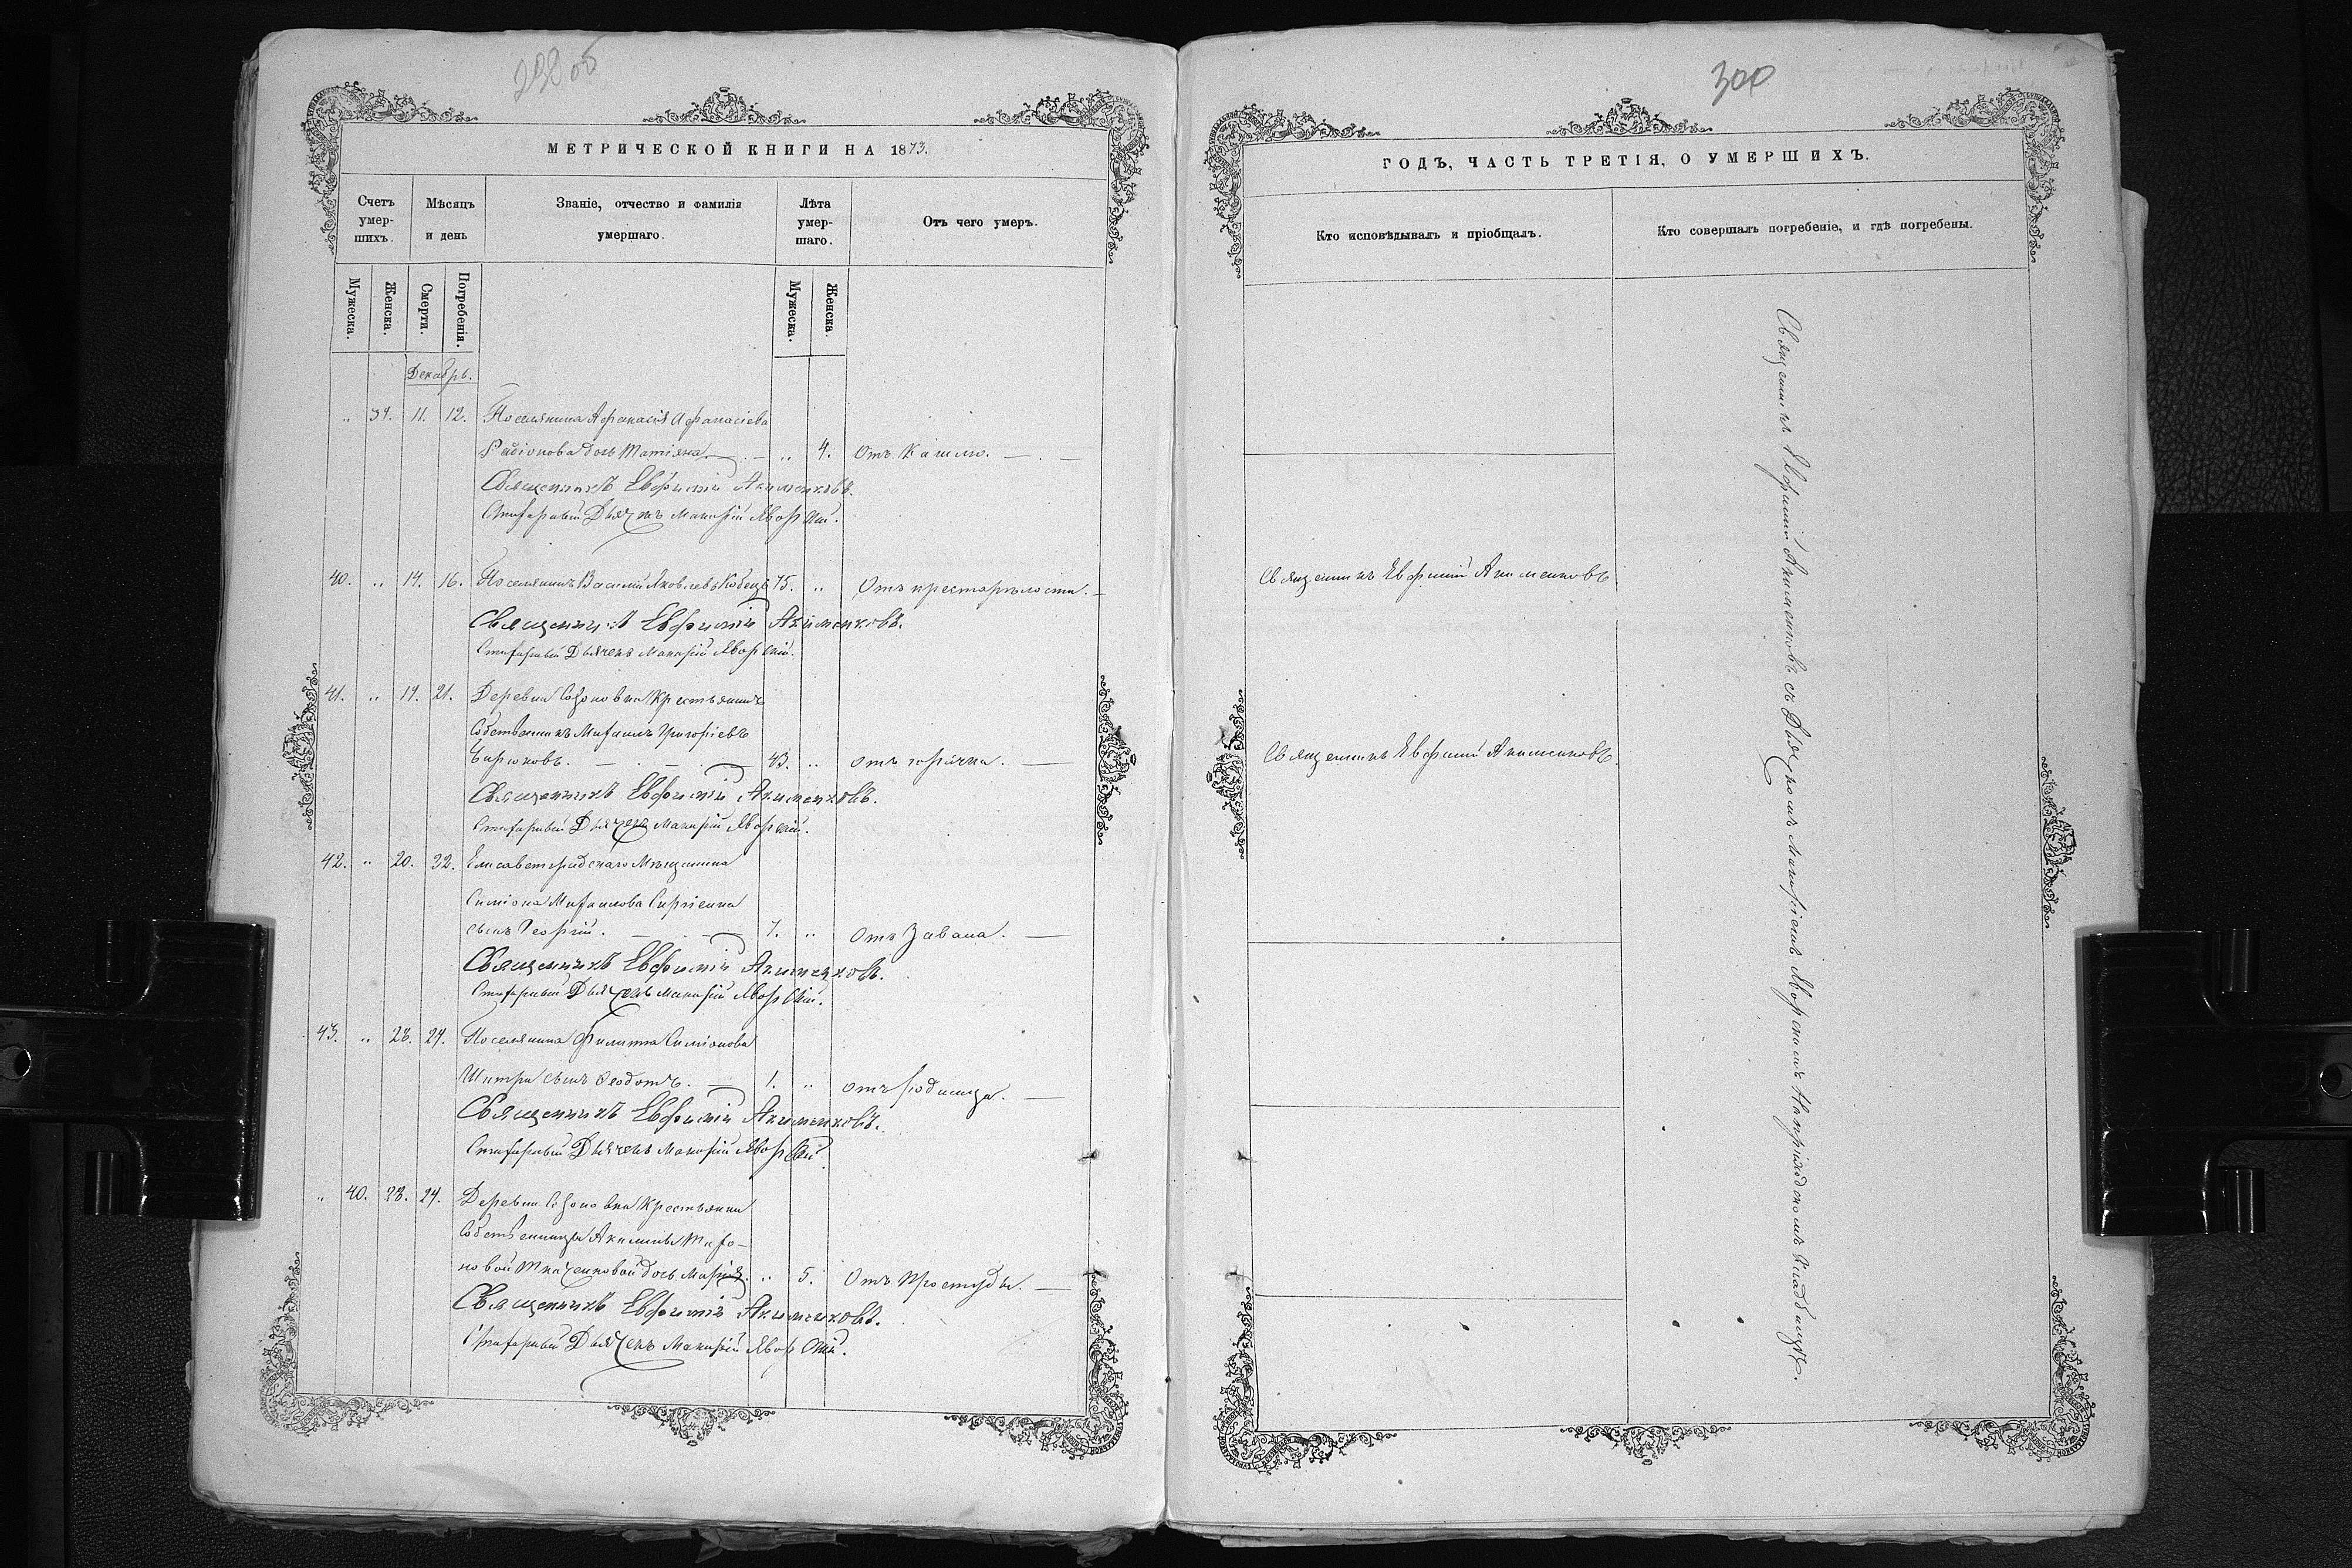 300
МЕТРИЧЕСКОЙ КНИГИ НА 1873.
Счетъ умер-
шихъ.
Мѣсяцъ
и день
Званіе, отчество и фамилія
умершаго.
Лѣта
умер-
шаго.
Отъ чего умеръ.
Мужеска.
Женска.
Смерти.
Погребенія.
Мужеска.
Женска.
Декабрь.
„ 39. 11. 12. Поселянина Афанасія Афанасіева
Радіонова дочь Татіяна. „ 4. Отъ Кашлю.
Священникъ Евфимій Акименковъ.
Дьячекъ Макарій Яворскій.
40. „ 14. 16. Поселянинъ Василій Яковлевъ Кобецъ 75. „ Отъ престарѣлости.
Священникъ Евфимій Акименковъ.
Дьячекъ Макарій Яворскій.
41. „ 19. 21. Деревни Созоновки Крестьянинъ
Собственникъ Михаилъ Григоріевъ
Бирюковъ. 43. „ отъ горячки.
Священникъ Евфимій Акименковъ.
Дьячекъ Макарій Яворскій.
42. „ 20. 22. Елисаветградскаго Мѣщанина
Симіона Михаилова Сиргіенка
сынъ Георгій. 7. „ Отъ
Священникъ Евфимій Акименковъ.
Дьячекъ Макарій Яворскій.
43. „ 23. 24. Поселянина Филиппа Симіонова
сынъ Феодотъ. 1. „ отъ родимца.
Священникъ Евфимій Акименковъ.
Дьячекъ Макарій Яворскій.
„ 40. 23. 24. Деревни Созоновки Крестьянки
Собственницы Акилины Тихо-
новой Ткаченковой дочь Марія. „ 5. Отъ Простуды.
Священникъ Евфимій Акименковъ.
Дьячекъ Макарій Яворскій.
ГОДЪ, ЧАСТЬ ТРЕТІЯ, О УМЕРШИХЪ.
Кто исповѣдывалъ и пріобщалъ.
Кто совершалъ погребеніе, и гдѣ погребены.
Священникъ Евфимій Акименковъ
Священникъ Евфимій Акименковъ
Священникъ Евфимій Акименковъ съ Дьячкомъ Макаріемъ Яворскимъ На приходскомъ Кладбищѣ.